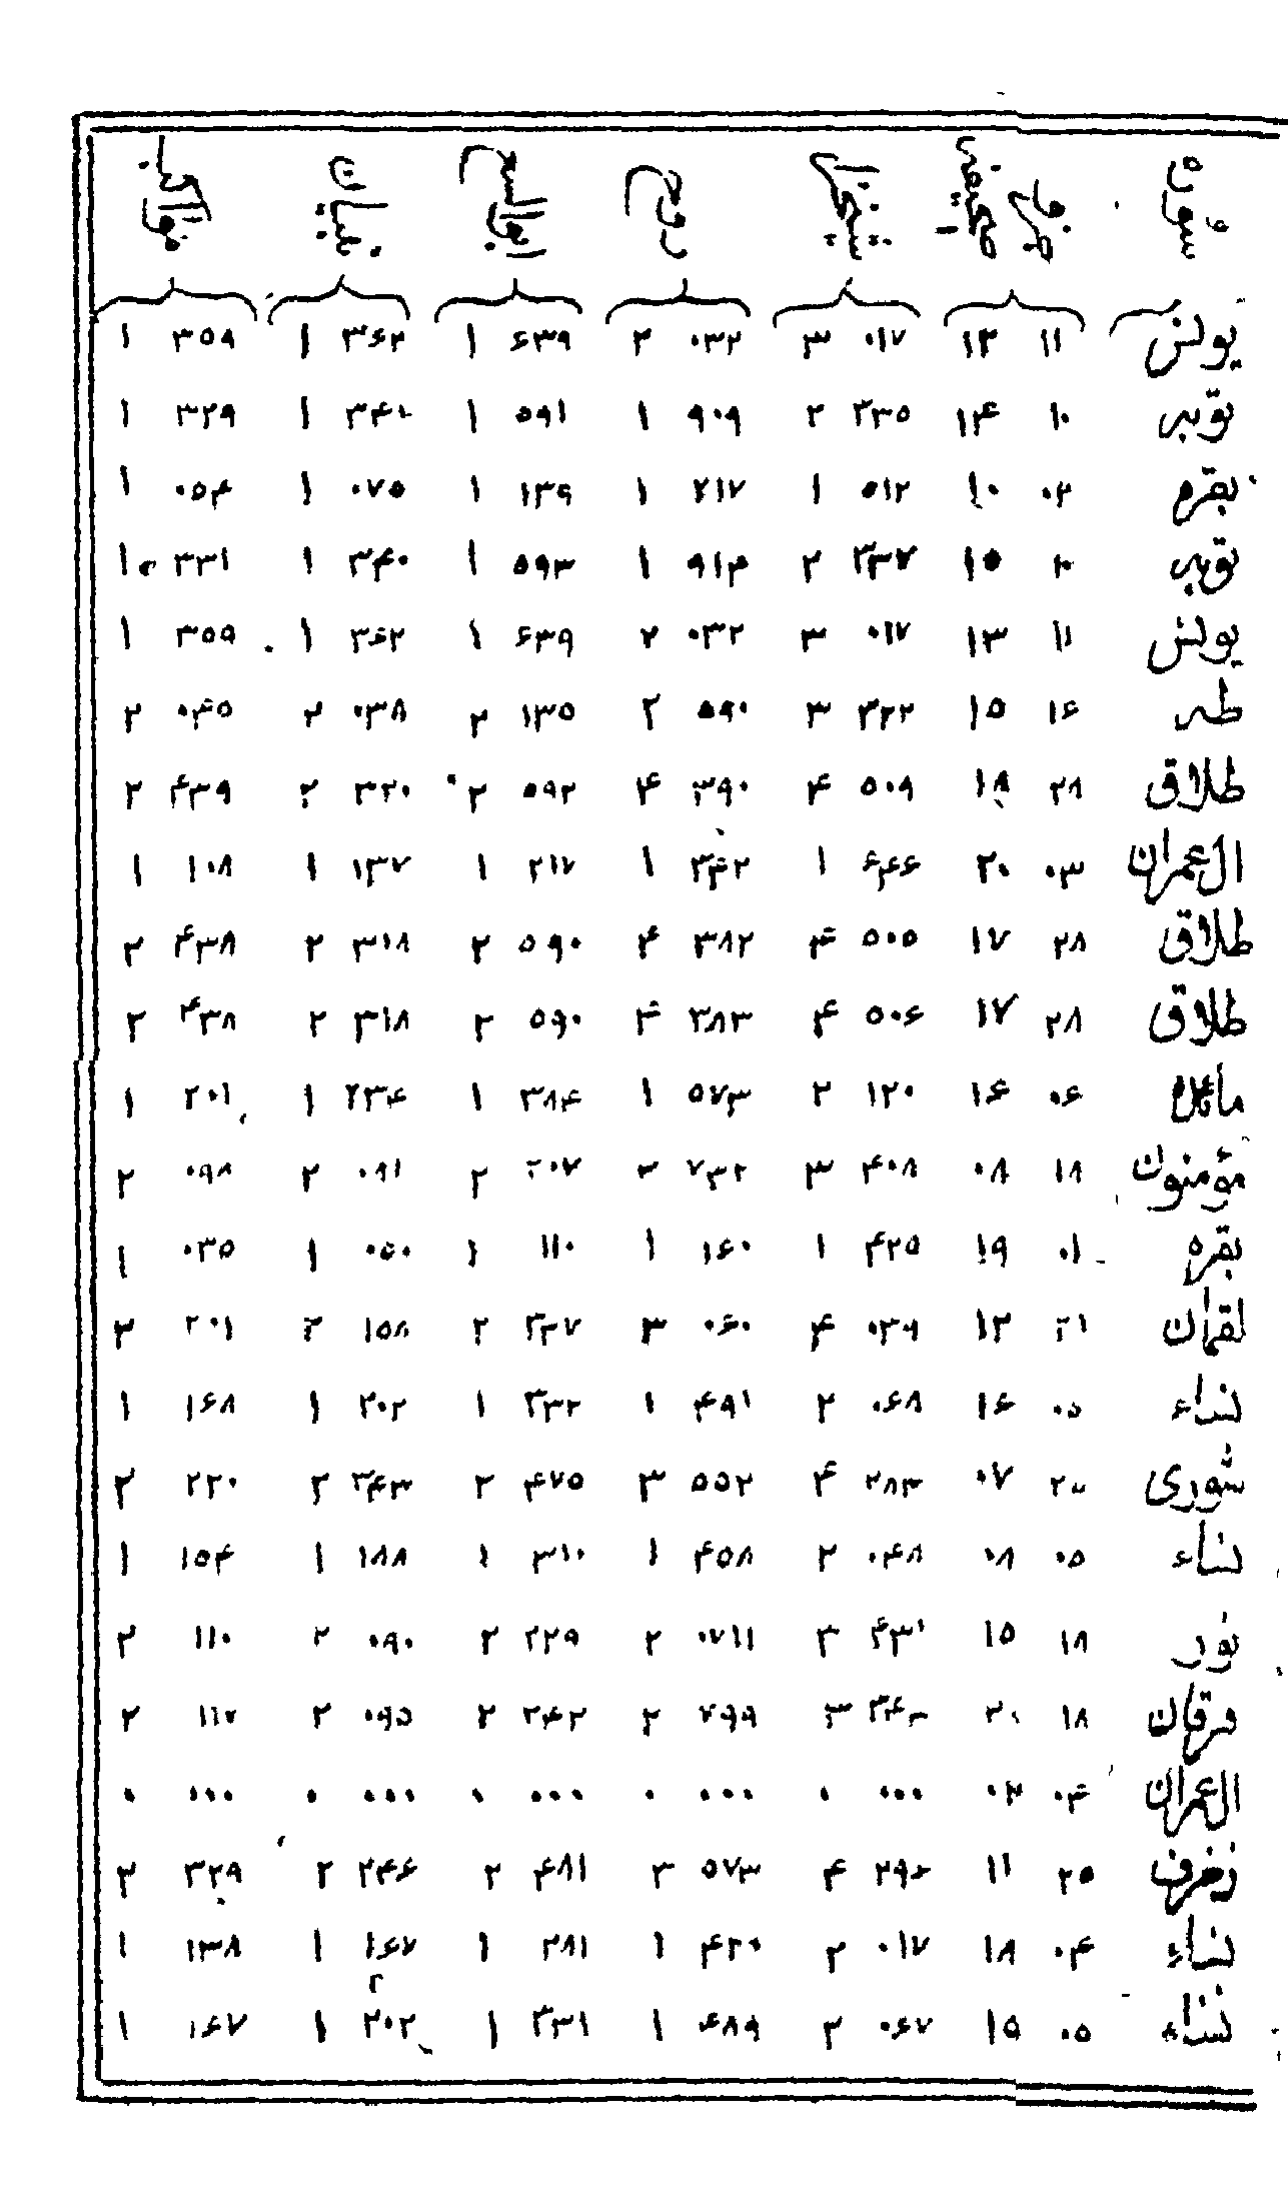 یونس ۱۱ ۱۳ ۰۱۷ ۳ ۰۳۲ ۲ ۶۳۹ ۱ ۳۶۲ ۱ ۳۵۹ ۱
توبه ۱۰ ۱۴ ۳۳۵ ۲ ۹۰۹ ۱ ۵۹۱ ۱ ۱ ۳۲۹ ۱
بقره ۰۲ ۱۰ ۵۱۲ ۱ ۲۱۷ ۱ ۱۳۹ ۱ ۰۷۵ ۱ ۰۵۴ ۱
توبه ۱۰ ۱۵ ۳۳۷ ۲ ۹۱۳ ۱ ۵۹۳ ۱ ۳۴۰ ۱ ۳۳۱ ۱
یونس ۱۱ ۱۳ ۰۱۷ ۳ ۰۳۲ ۲ ۶۳۹ ۱ ۳۶۲ ۱ ۳۵۹ ۱
طه ۱۶ ۱۵ ۳۲۲ ۳ ۵۹۰ ۲ ۱۳۵ ۲ ۰۳۸ ۲ ۰۴۵ ۲
طلاق ۲۸ ۱۸ ۵۰۹ ۴ ۳۹۰ ۴ ۵۹۲ ۲ ۳۲۰ ۲ ۴۳۹ ۲
ال عمران ۰۳ ۲۰ ۶۴۶ ۱ ۳۴۲ ۱ ۲۱۷ ۱ ۱۳۷ ۱ ۱۰۸ ۱
طلاق ۲۸ ۱۷ ۵۰۵ ۴ ۳۸۲ ۴ ۵۹۰ ۲ ۳۱۸ ۲ ۴۳۸ ۲
طلاق ۲۸ ۱۷ ۵۰۶ ۴ ۳۸۳ ۴ ۵۹۰ ۲ ۳۱۸ ۲ ۴۳۸ ۲
مائده ۰۶ ۱۶ ۱۲۰ ۲ ۵۷۳ ۱ ۳۸۴ ۱ ۲۳۴ ۱ ۲۰۱ ۱
مؤمنون ۱۸ ۰۸ ۴۰۸ ۳ ۷۳۲ ۲ ۲۰۷ ۲ ۰۸۱ ۲ ۰۹۸ ۲
بقره ۰۱ ۱۹ ۴۲۵ ۱ ۱۶۰ ۱ ۱۱۰ ۱ ۰۵۰ ۱ ۰۳۵ ۱
لقمان ۲۱ ۱۲ ۰۳۹ ۴ ۰۶۰ ۳ ۳۳۷ ۲ ۱۵۸ ۲ ۲۰۱ ۲
نساء ۰۵ ۱۶ ۰۶۸ ۲ ۴۹۱ ۱ ۳۳۲ ۱ ۲۰۲ ۱ ۱۶۸ ۱
شوری ۲۵ ۰۷ ۲۸۳ ۴ ۵۵۲ ۳ ۴۷۵ ۲ ۲۴۳ ۲ ۲۲۰ ۲
نساء ۰۵ ۰۸ ۰۴۸ ۲ ۴۵۸ ۱ ۳۱۰ ۱ ۱۸۸ ۱ ۱۵۴ ۱
نور ۱۸ ۱۵ ۴۳۱ ۳ ۰۷۱۱ ۲ ۲۲۹ ۲ ۰۹۰ ۲ ۱۱۰ ۲
فرقان ۱۸ ۲۰ ۳ ۷۹۹ ۲ ۲۴۲ ۲ ۰۹۵ ۲ ۱۱۷ ۲
ال عمران ۰۴ ۰۲ ۰۰۰ ۰ ۰۰۰ ۰ ۰۰۰ ۰ ۰۰۰ ۰ ۰۰۰ ۰
زخرف ۲۵ ۱۱ ۲۹۶ ۴ ۵۷۳ ۳ ۴۸۱ ۲ ۲۴۶ ۲ ۳۲۹ ۲
نساء ۰۴ ۱۸ ۰۱۷ ۲ ۴۲۰ ۱ ۲۸۱ ۱ ۱۶۷ ۱ ۱۳۸ ۱
نساء ۰۵ ۱۵ ۰۶۷ ۲ ۴۸۹ ۱ ۳۳۱ ۱ ۲۰۲ ۱ ۱۶۷ ۱